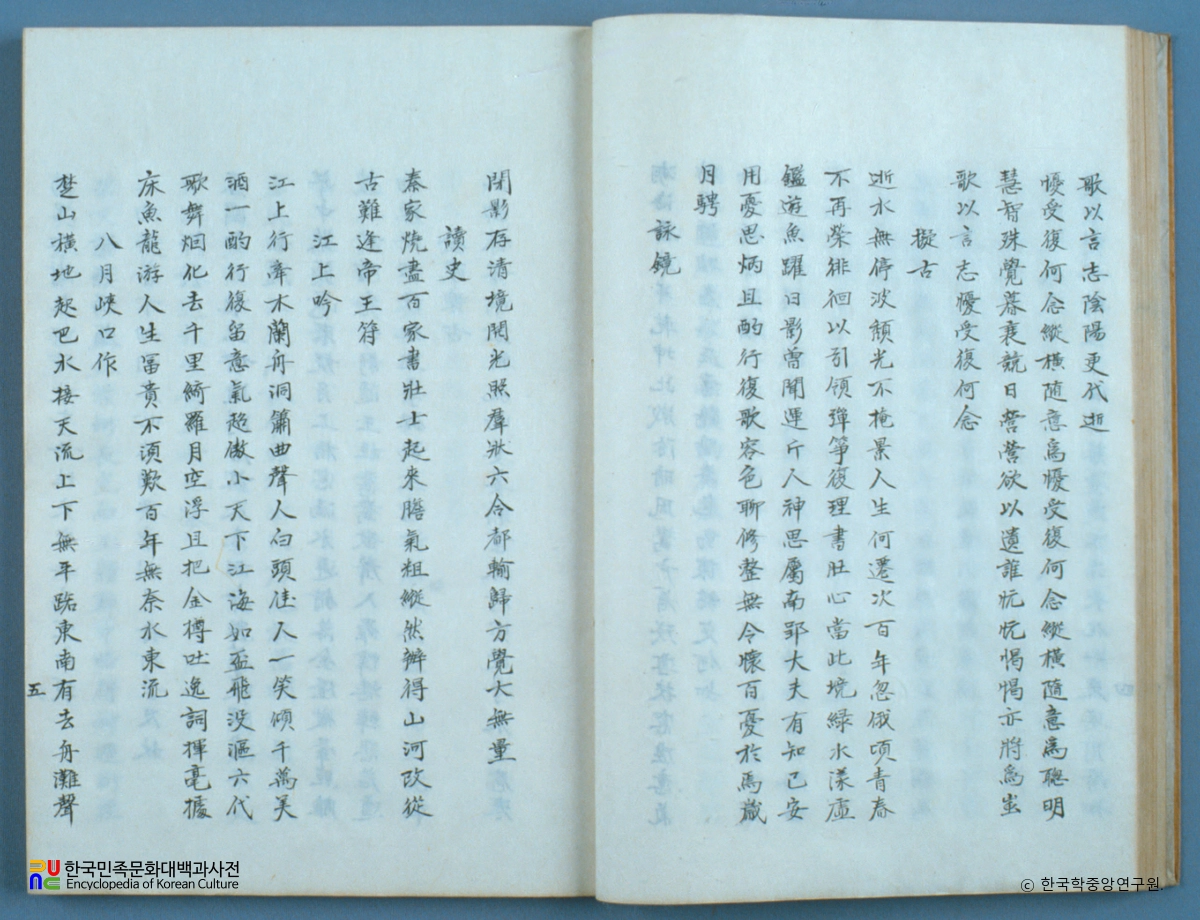 歌以言志陰陽更代逝
憂受復何念縱橫隨意爲憂受復何念縱橫隨意爲聰明
慧智殊覺暮衰競日營營欲以遺誰怳怳愒愒亦將爲
歌以言志憂受復何念
擬古
逝水無停波頹光不掩景人生何遷次百年忽俄頃青春
不再榮徘徊以引領彈箏復理書壯心當此境綠水漾虛
鑑遊魚躍日影曾聞運斤人神思屬南郢大夫有知己安
用憂思炳且酌行復歌容色聊修整無令懷百憂於焉歲
月騁
詠鏡
閉影存清境開光照羣狀六合都輸歸方覺大無量
讀史
秦家燒盡百家書壯士起來膽氣粗縱然辦得山河改從
古難逢帝王符
江上吟
江上行牽木蘭舟洞簫曲聲人白頭佳人一笑傾千萬美
酒一酌行復留意氣超傲小天下江海如盃飛没漚六代
歌舞烟化去千里綺羅月空浮且把金樽吐逸詞揮毫據
床魚龍游人生富貴不須歎百年無奈水東流
八月峽口作
楚山橫地起巴水接天流上下無平路東南有去舟灘聲
五
한국민족문화대백과사전
Encyclopedia of Korean Culture
© 한국학중앙연구원.